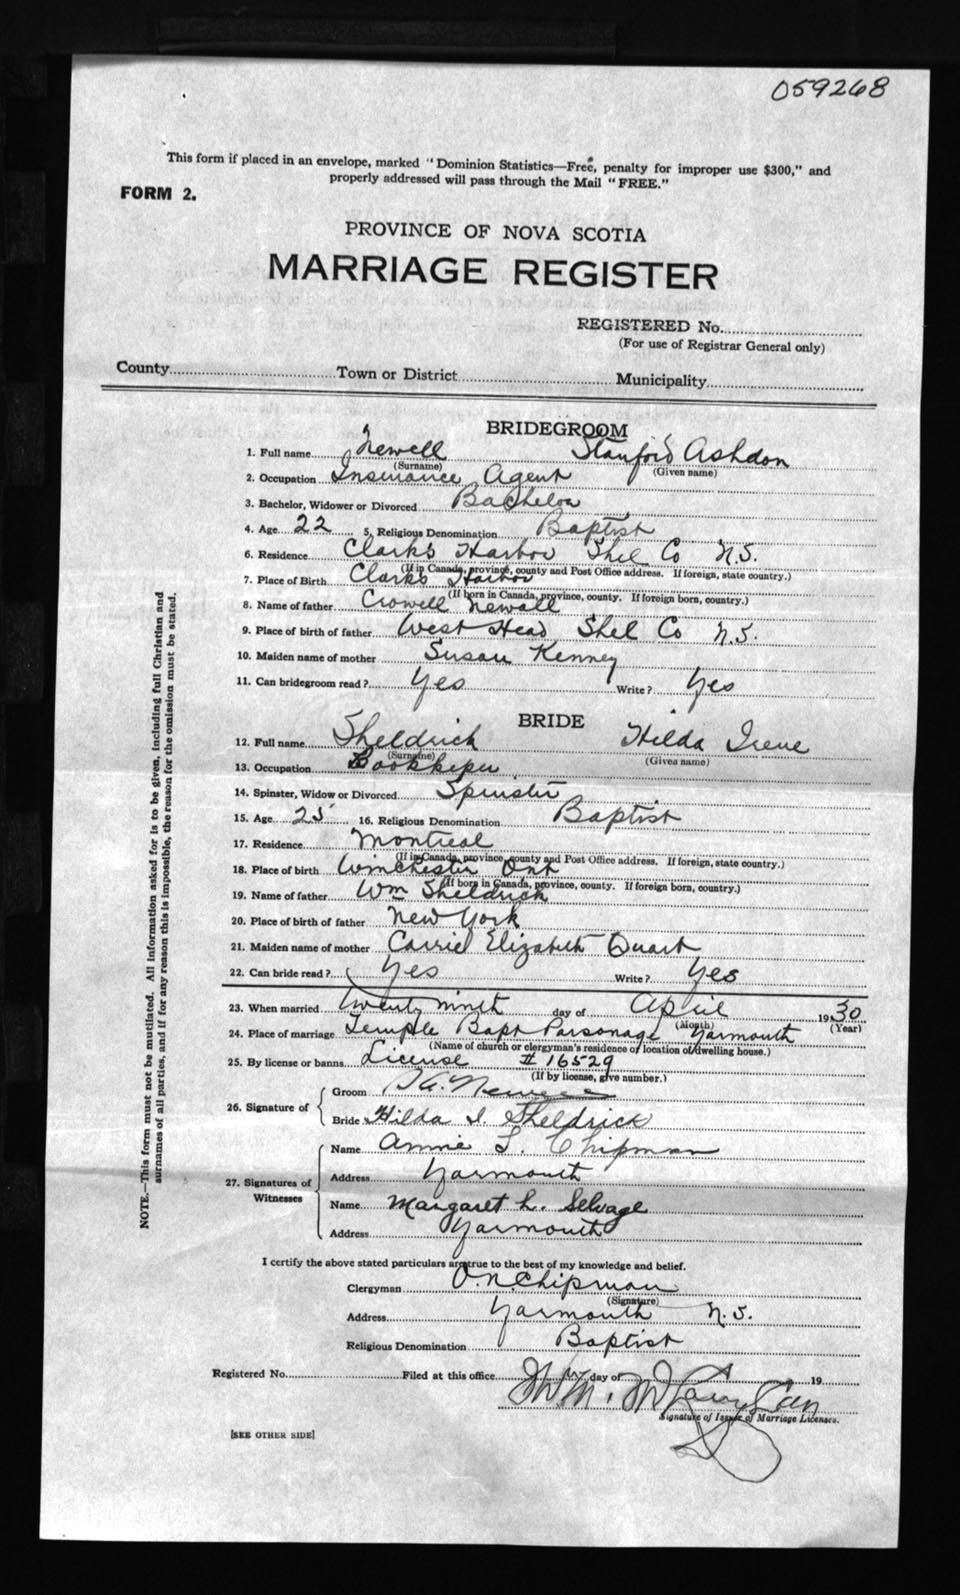 059268
This form if placed in an envelope, marked "Dominion Statistics—Free, penalty for improper use $300," and
properly addressed will pass through the Mail "FREE."
FORM 2.
PROVINCE OF NOVA SCOTIA
MARRIAGE REGISTER
REGISTERED No.
(For use of Registrar General only)
County Town or District Municipality
BRIDEGROOM
1. Full name Newell Stanford Ashdon
(Surname) (Given name)
2. Occupation Insurance Agent
3. Bachelor, Widower or Divorced Bachelor
4. Age 22 5. Religious Denomination Baptist
6. Residence Clarks Harbor Shel Co N.S.
(If in Canada, province, county and Post Office address. If foreign, state country.)
7. Place of Birth Clarks Harbor
(If born in Canada, province, county. If foreign born, country.)
8. Name of father Crowell Newall
9. Place of birth of father West Head Shel Co N.S.
10. Maiden name of mother Susan Kenney
11. Can bridegroom read? Yes Write? Yes
BRIDE
12. Full name Sheldrick Hilda Irene
(Surname) (Given name)
13. Occupation Bookkeper
14. Spinster, Widow or Divorced Spinster
15. Age 25 16. Religious Denomination Baptist
17. Residence Montreal
(If in Canada, province, county and Post Office address. If foreign, state country.)
18. Place of birth Winchester Ont
(If born in Canada, province, county. If foreign born, country.)
19. Name of father Wm Sheldrick
20. Place of birth of father New York
21. Maiden name of mother Carrie Elizabeth Quart
22. Can bride read? Yes Write? Yes
23. When married twenty ninth day of April 1930
(Month) (Year)
24. Place of marriage Temple Bapt Parsonage Yarmouth
(Name of church or clergyman's residence or location of dwelling house.)
25. By license or banns License # 16529
(If by license, give number.)
26. Signature of
Groom
Bride Hilda I. Sheldrick
27. Signatures of Witnesses
Name Annie L. Chipman
Address Yarmouth
Name Margaret L. Selvage
Address Yarmouth
I certify the above stated particulars are true to the best of my knowledge and belief.
Clergyman O.N. Chipman
(Signature)
Address Yarmouth N.S.
Religious Denomination Baptist
Registered No. Filed at this office day of 19
Signature of Issuer of Marriage Licenses.
[SEE OTHER SIDE]
NOTE.—This form must not be mutilated. All information asked for is to be given, including full Christian and
surnames of all parties, and if for any reason this is impossible, the reason for the omission must be stated.